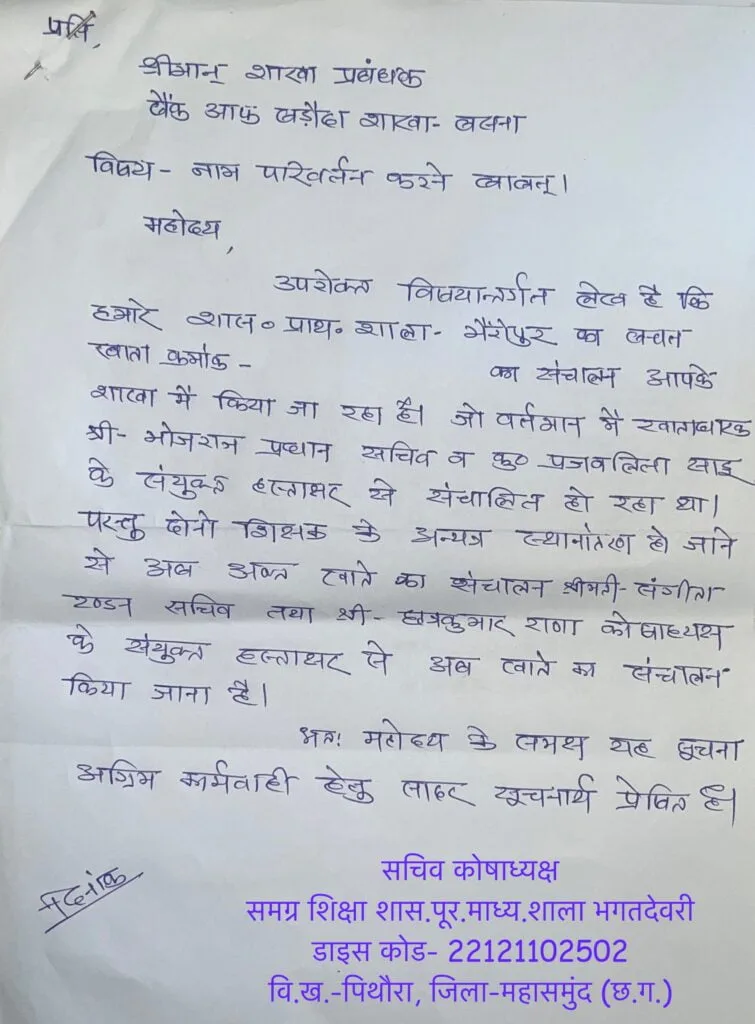 प्रति,
श्रीमान् शाखा प्रबंधक
बैंक आफ बड़ौदा शाखा- बसना
विषय- नाम परिवर्तन करने बाबत्।
महोदय,
उपरोक्त विषयान्तर्गत लेख है कि
हमारे शास० प्राथ० शाला- भैरोपुर का बचत
खाता क्रमांक - का संचालन आपके
शाखा में किया जा रहा है। जो वर्तमान में खाताधारक
श्री- भोजराज प्रधान सचिव व कु० प्रजवलिता साहू
के संयुक्त हस्ताक्षर से संचालित हो रहा था।
परन्तु दोनो शिक्षक के अन्यत्र स्थानांतरण हो जाने
से अब उक्त खाते का संचालन श्रीमती- संगीता
टण्डन सचिव तथा श्री- छत्रकुमार राणा कोषाध्यक्ष
के संयुक्त हस्ताक्षर से अब खाते का संचालन
किया जाना है।
अतः महोदय के समक्ष यह सूचना
अग्रिम कार्यवाही हेतु सादर सूचनार्थ प्रेषित है।
दिनांक
सचिव कोषाध्यक्ष
समग्र शिक्षा शास.पूर.माध्य.शाला भगतदेवरी
डाइस कोड- 22121102502
वि.ख.-पिथौरा, जिला-महासमुंद (छ.ग.)